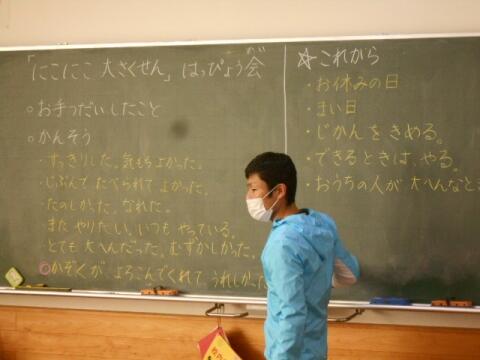 「にこにこ 大さくせん」はっぴょう会
めい
○お手つだいしたこと
○かんそう
・すっきりした。気もちよかった。
・じぶんで たべられて よかった。
・たのしかった。なれた。
・また やりたい。いつも やっている。
・とても 大へんだった。むずかしかった。
◎かぞくが よろこんでくれて うれしかった
☆これから
・お休みの日
・まい日
・じかんを きめる。
・できるときは、やる。
・おうちの人が 大へんなとき